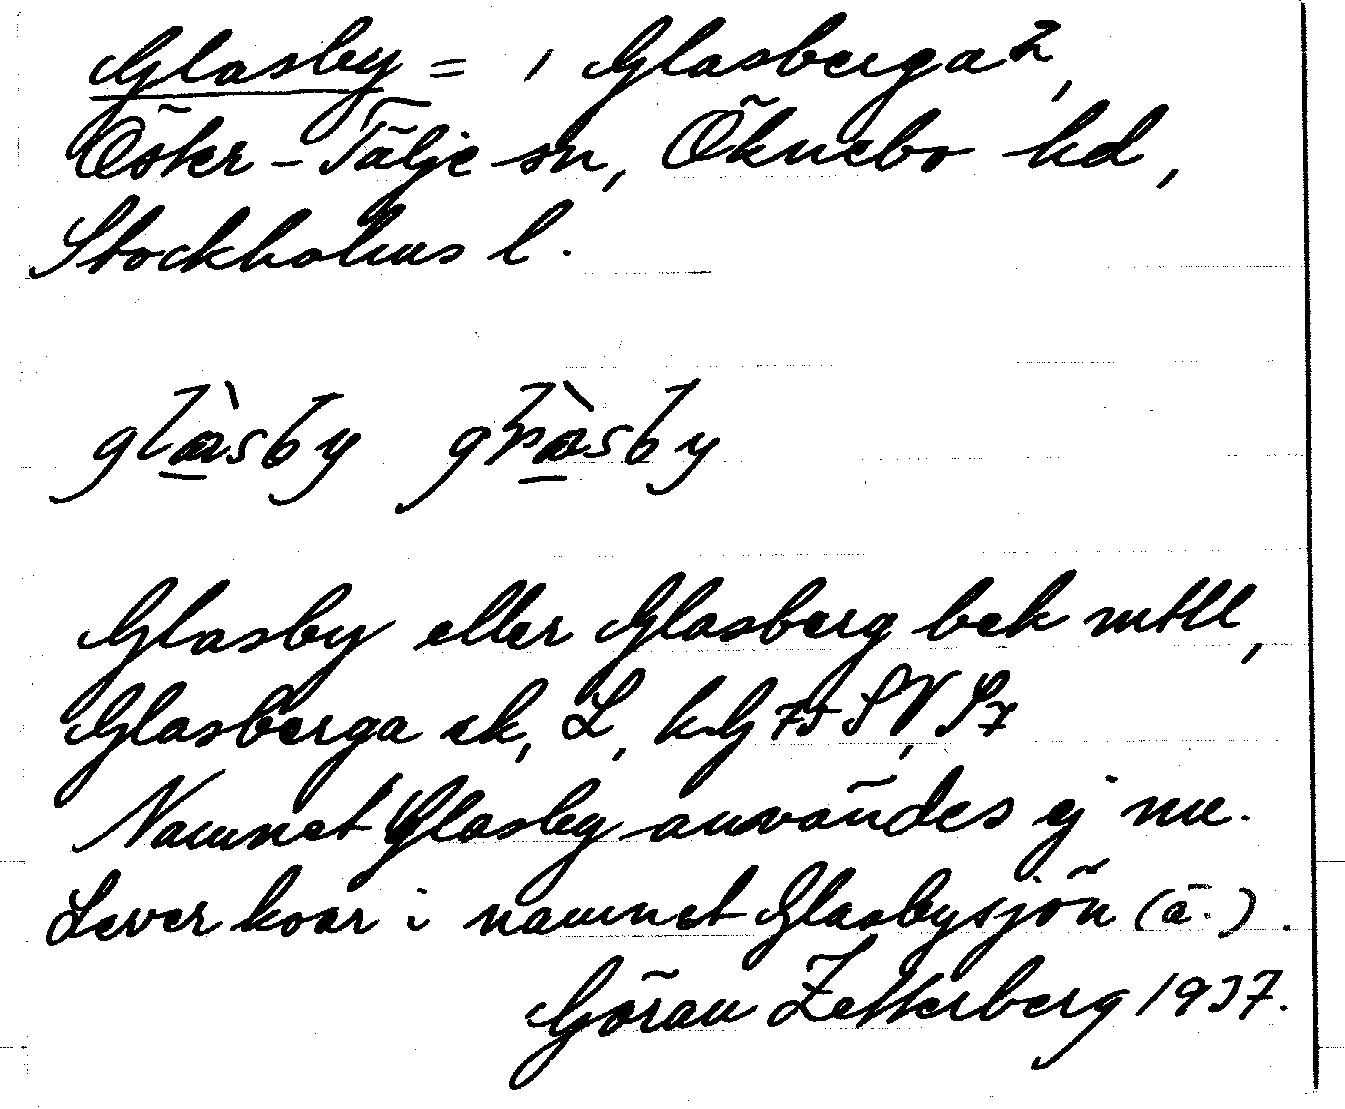 Glasby = 1 Glasberga²,
Öster-Tälje sn, Öknebo hd,
Stockholms l.
Glasby eller Glasberg bek mtll,
Glasberga ek, L, kG 75 SV S7
Namnet Glasby användes ej nu.
Lever kvar i namnet Glasbysjön (ä.).
Göran Zetterberg 1937.